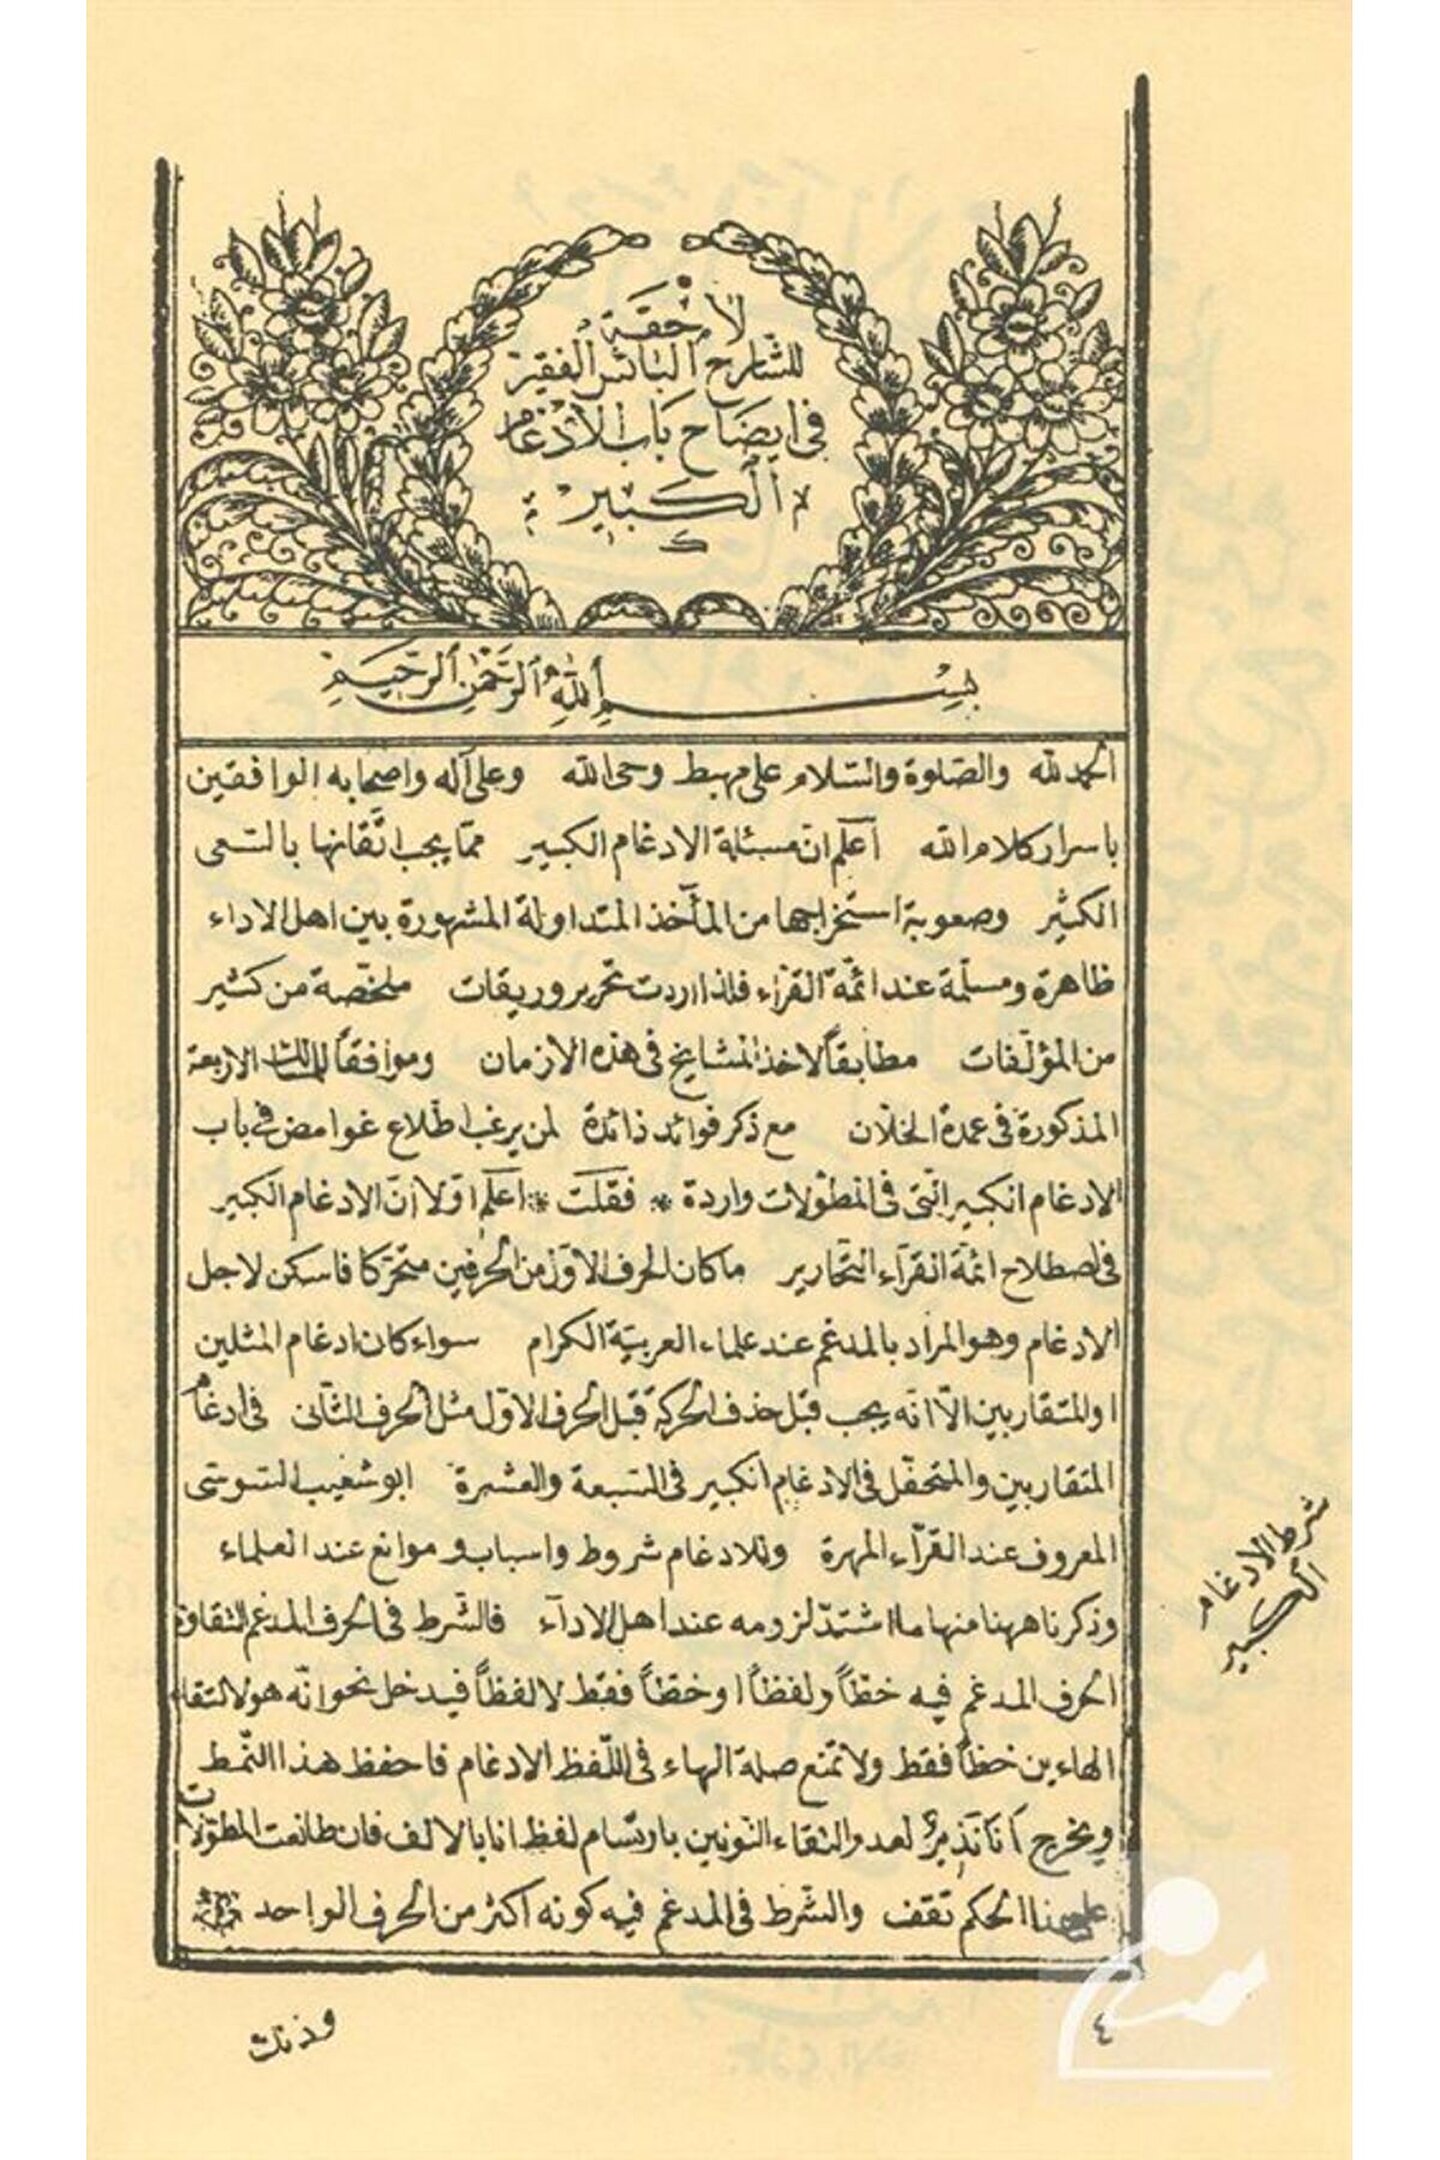 لاحقة
للشارح البائس الفقير
فى ايضاح باب الادغام
الكبير
بسم الله الرحمن الرحيم
الحمد لله والصلوة والسلام على مهبط وحى الله وعلى آله واصحابه الواقفين
باسرار كلام الله اعلم ان مسئلة الادغام الكبير مما يجب اتقانها بالسعى
الكثير وصعوبة استخراجها من المآخذ المتداولة المشهورة بين اهل الاداء
ظاهرة ومسلمة عند ائمة القراء فلذا اردت تحرير وريقات ملخصة من كثير
من المؤلفات مطابقاً لاخذ المشايخ فى هذه الازمان وموافقاً للمسالك الاربعة
المذكورة فى عمدة الخلان مع ذكر فوائد زائدة لمن يرغب اطلاع غوامض فى باب
الادغام الكبير التى فى المطولات واردة * فقلت * اعلم اولا ان الادغام الكبير
فى اصطلاح ائمة القرآء النحارير ما كان الحرف الاول من الحرفين متحركا فاسكن لاجل
الادغام وهو المراد بالمدغم عند علماء العربية الكرام سواء كان ادغام المثلين
او المتقاربين الا انه يجب قبل حذف الحركة قبل الحرف الاول مثل الحرف الثانى فى ادغام
المتقاربين والمتحفل فى الادغام الكبير فى السبعة والعشرة ابو شعيب السوسى
المعروف عند القرآء المهرة وللادغام شروط واسباب وموانع عند العلماء
وذكرنا ههنا منها ما اشتد لزومه عند اهل الادآء فالشرط فى الحرف المدغم التقاؤه
الحرف المدغم فيه خطاً ولفظاً او خطاً فقط لا لفظاً فيدخل نحو انه هو لالتقاء
الهاءين خطاً فقط ولا تمنع صلة الهاء فى اللفظ الادغام فاحفظ هذا النمط
ويخرج اَنَا نَذِيرٌ لعدم التقاء النونين بارتسام لفظ انا بالالف فان طالعت المطولات
على هذا الحكم تقف والشرط فى المدغم فيه كونه اكثر من الحرف الواحد
شرط الادغام
الكبير
وذلك
٤